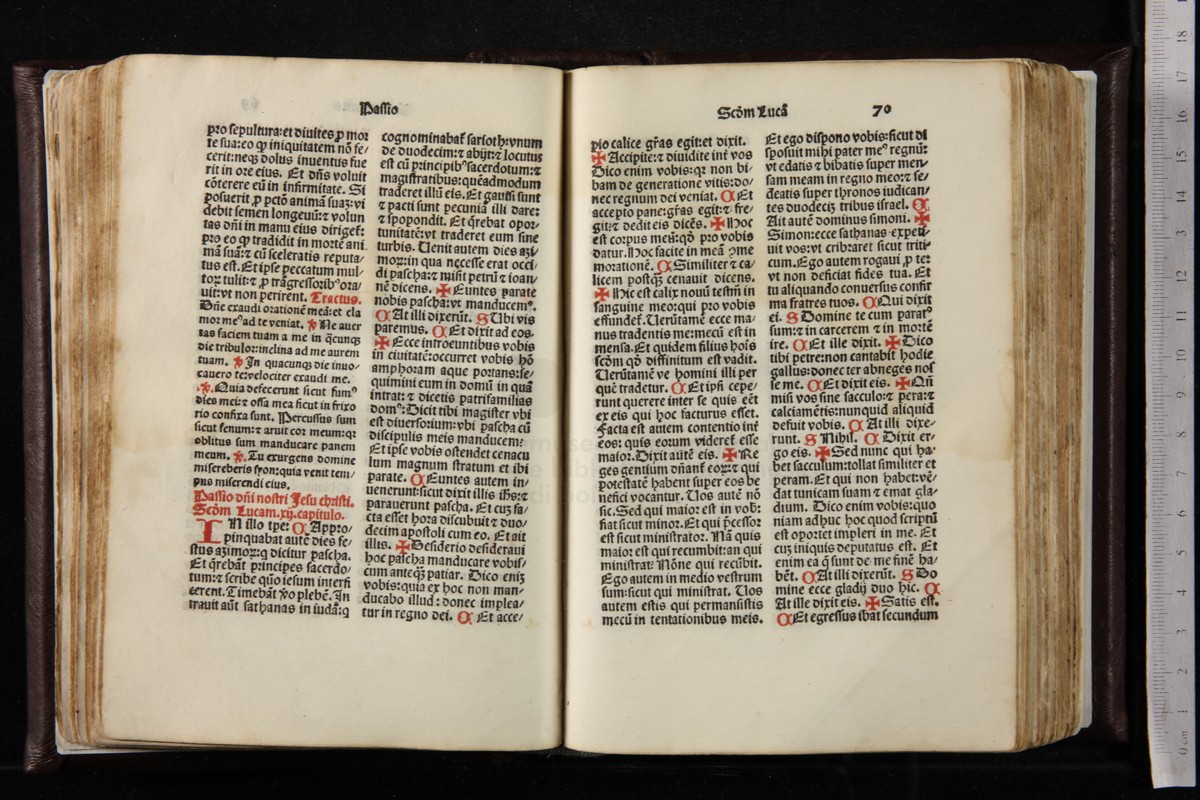 Passio
pro sepultura:et diuites ꝓ mor
te sua:eo ꝙ iniquitatem nõ fe/
cerit:neqꝫ dolus inuentus fue
rit in ore eius. Et dñs voluit
cõterere eũ in infirmitate. Si
posuerit ꝓ pctõ animã suaꝫ: vi
debit semen longeuũ:⁊ volun
tas dñi in manu eius diriget̃:
pro eo ꝙ tradidit in mortẽ ani
mã suã:⁊ cũ sceleratis reputa/
tus est. Et ipse peccatum mul/
toꝝ tulit:⁊ ꝓ trãsgressoribꝰ ora/
uit:vt non perirent. Tractus.
Dñe exaudi orationẽ meã:et cla
mor meꝰ ad te veniat. ℣ Ne auer
tas faciem tuam a me in q̃cunqꝫ
die tribulor:inclina ad me aurem
tuam. ℣ In quacunqꝫ die inuo/
cauero te:velociter exaudi me.
℣ Quia defecerunt sicut fumꝰ
dies mei:⁊ ossa mea sicut in frixo
rio confixa sunt. Percussus sum
sicut fenum:⁊ aruit cor meum:qꝛ
oblitus sum manducare panem
meum. ℣ Tu exurgens domine
misereberis syon:quia venit tem/
pus miserendi eius.
Passio dñi nostri Jesu christi.
Scõm Lucam.xxij.capitulo.
IN illo tpe: C Appro/
pinquabat autẽ dies fe/
stus azimoꝝ:q̃ dicitur pascha.
Et q̃rebãt principes sacerdo/
tum:⁊ scribe quõ iesum interfi
cerent. Timebãt ꝟo plebẽ. In
trauit aũt sathanas in iudã:q
cognominabat̃ sarioth:vnum
de duodecim:⁊ abijt:⁊ locutus
est cũ principibꝰ sacerdotum:⁊
magistratibus:quẽadmodum
traderet illũ eis. Et gauisi sunt
⁊ pacti sunt pecuniã illi dare:
⁊ spopondit. Et q̃rebat opor/
tunitatẽ:vt traderet eum sine
turbis. Uenit autem dies azi/
moꝝ:in qua necesse erat occi/
di pascha:⁊ misit petrũ ⁊ ioan/
nẽ dicens. ✠ Euntes parate
nobis pascha:vt manducemꝰ.
C At illi dixerũt. S Ubi vis
paremus. C Et dixit ad eos.
✠ Ecce introeuntibus vobis
in ciuitatẽ:occurret vobis hõ
amphoram aque portans:se/
quimini eum in domũ in quã
intrat: ⁊ dicetis patrifamilias
domꝰ: Dicit tibi magister vbi
est diuersorium:vbi pascha cũ
discipulis meis manducem:
Et ipse vobis ostendet cenacu
lum magnum stratum et ibi
parate. C Euntes autem in/
uenerunt:sicut dixit illis iħs:⁊
parauerunt pascha. Et cuꝫ fa/
cta esset hora discubuit:⁊ duo/
decim apostoli cum eo. Et ait
illis. ✠ Desiderio desideraui
hoc pascha manducare vobis/
cum anteqꝫ patiar. Dico eniꝫ
vobis:quia ex hoc non man/
ducabo illud: donec implea/
tur in regno dei. C Et acce/
Scõm Lucã 70
pto calice grãs egit:et dixit.
✠ Accipite:⁊ diuidite int̃ vos
Dico enim vobis:qꝛ non bi/
bam de generatione vitis:do/
nec regnum dei veniat. C Et
accepto pane:grãs egit:⁊ fre/
git:⁊ dedit eis dicẽs. ✠ Hoc
est corpus meũ:qd̃ pro vobis
datur. Hoc facite in meã ꝯme
morationẽ. C Similiter ⁊ ca/
licem postqꝫ cenauit dicens.
✠ Hic est calix nouũ testm̃ in
sanguine meo:qui pro vobis
effundet̃. Uerũtamẽ ecce ma/
nus tradentis me:mecũ est in
mensa. Et quidem filius hoĩs
scõm qd̃ diffinitum est vadit.
Uerũtamẽ ve homini illi per
quẽ tradetur. C Et ipsi cepe/
runt querere inter se quis eẽt
ex eis qui hoc facturus esset.
Facta est autem contentio int̃
eos: quis eorum videret̃ esse
maior. Dixit autẽ eis. ✠ Re
ges gentium dñant̃ eoꝝ:⁊ qui
potestatẽ habent super eos be
nefici vocantur. Uos autẽ nõ
sic. Sed qui maior est in vob̃:
fiat sicut minor. Et qui p̃cessor
est sicut ministrator. Nã quis
maior est qui recumbit:an qui
ministrat: Nõne qui recũbit.
Ego autem in medio vestrum
sum:sicut qui ministrat. Uos
autem estis qui permansistis
mecũ in tentationibus meis.
Et ego dispono vobis:sicut di
sposuit mihi pater meꝰ regnũ:
vt edatis ⁊ bibatis super men/
sam meam in regno meo:⁊ se/
deatis super thronos iudican/
tes duodeciꝫ tribus israel. C
Ait autẽ dominus simoni. ✠
Simon:ecce sathanas expeti/
uit vos:vt cribraret sicut triti/
cum. Ego autem rogaui ꝓ te:
vt non deficiat fides tua. Et
tu aliquando conuersus confir
ma fratres tuos. C Qui dixit
ei. S Domine te cum paratꝰ
sum:⁊ in carcerem ⁊ in mortẽ
ire. C Et ille dixit. ✠ Dico
tibi petre:non cantabit hodie
gallus:donec ter abneges nos
se me. C Et dixit eis. ✠ Qñ
misi vos sine sacculo:⁊ pera:⁊
calciamẽtis:nunquid aliquid
defuit vobis. C At illi dixe/
runt. S Nihil. C Dixit er/
go eis. ✠ Sed nunc qui ha/
bet sacculum:tollat similiter et
peram. Et qui non habet:vẽ/
dat tunicam suam ⁊ emat gla/
dium. Dico enim vobis:quo
niam adhuc hoc quod scriptũ
est oportet impleri in me. Et
cuꝫ iniquis deputatus est. Et
enim ea q̃ sunt de me finẽ ha/
bẽt. C At illi dixerũt. S Do
mine ecce gladij duo hic. C
At ille dixit eis. ✠ Satis est.
C Et egressus ibat secundum
0 cm 1 2 3 4 5 6 7 8 9 10 11 12 13 14 15 16 17 18